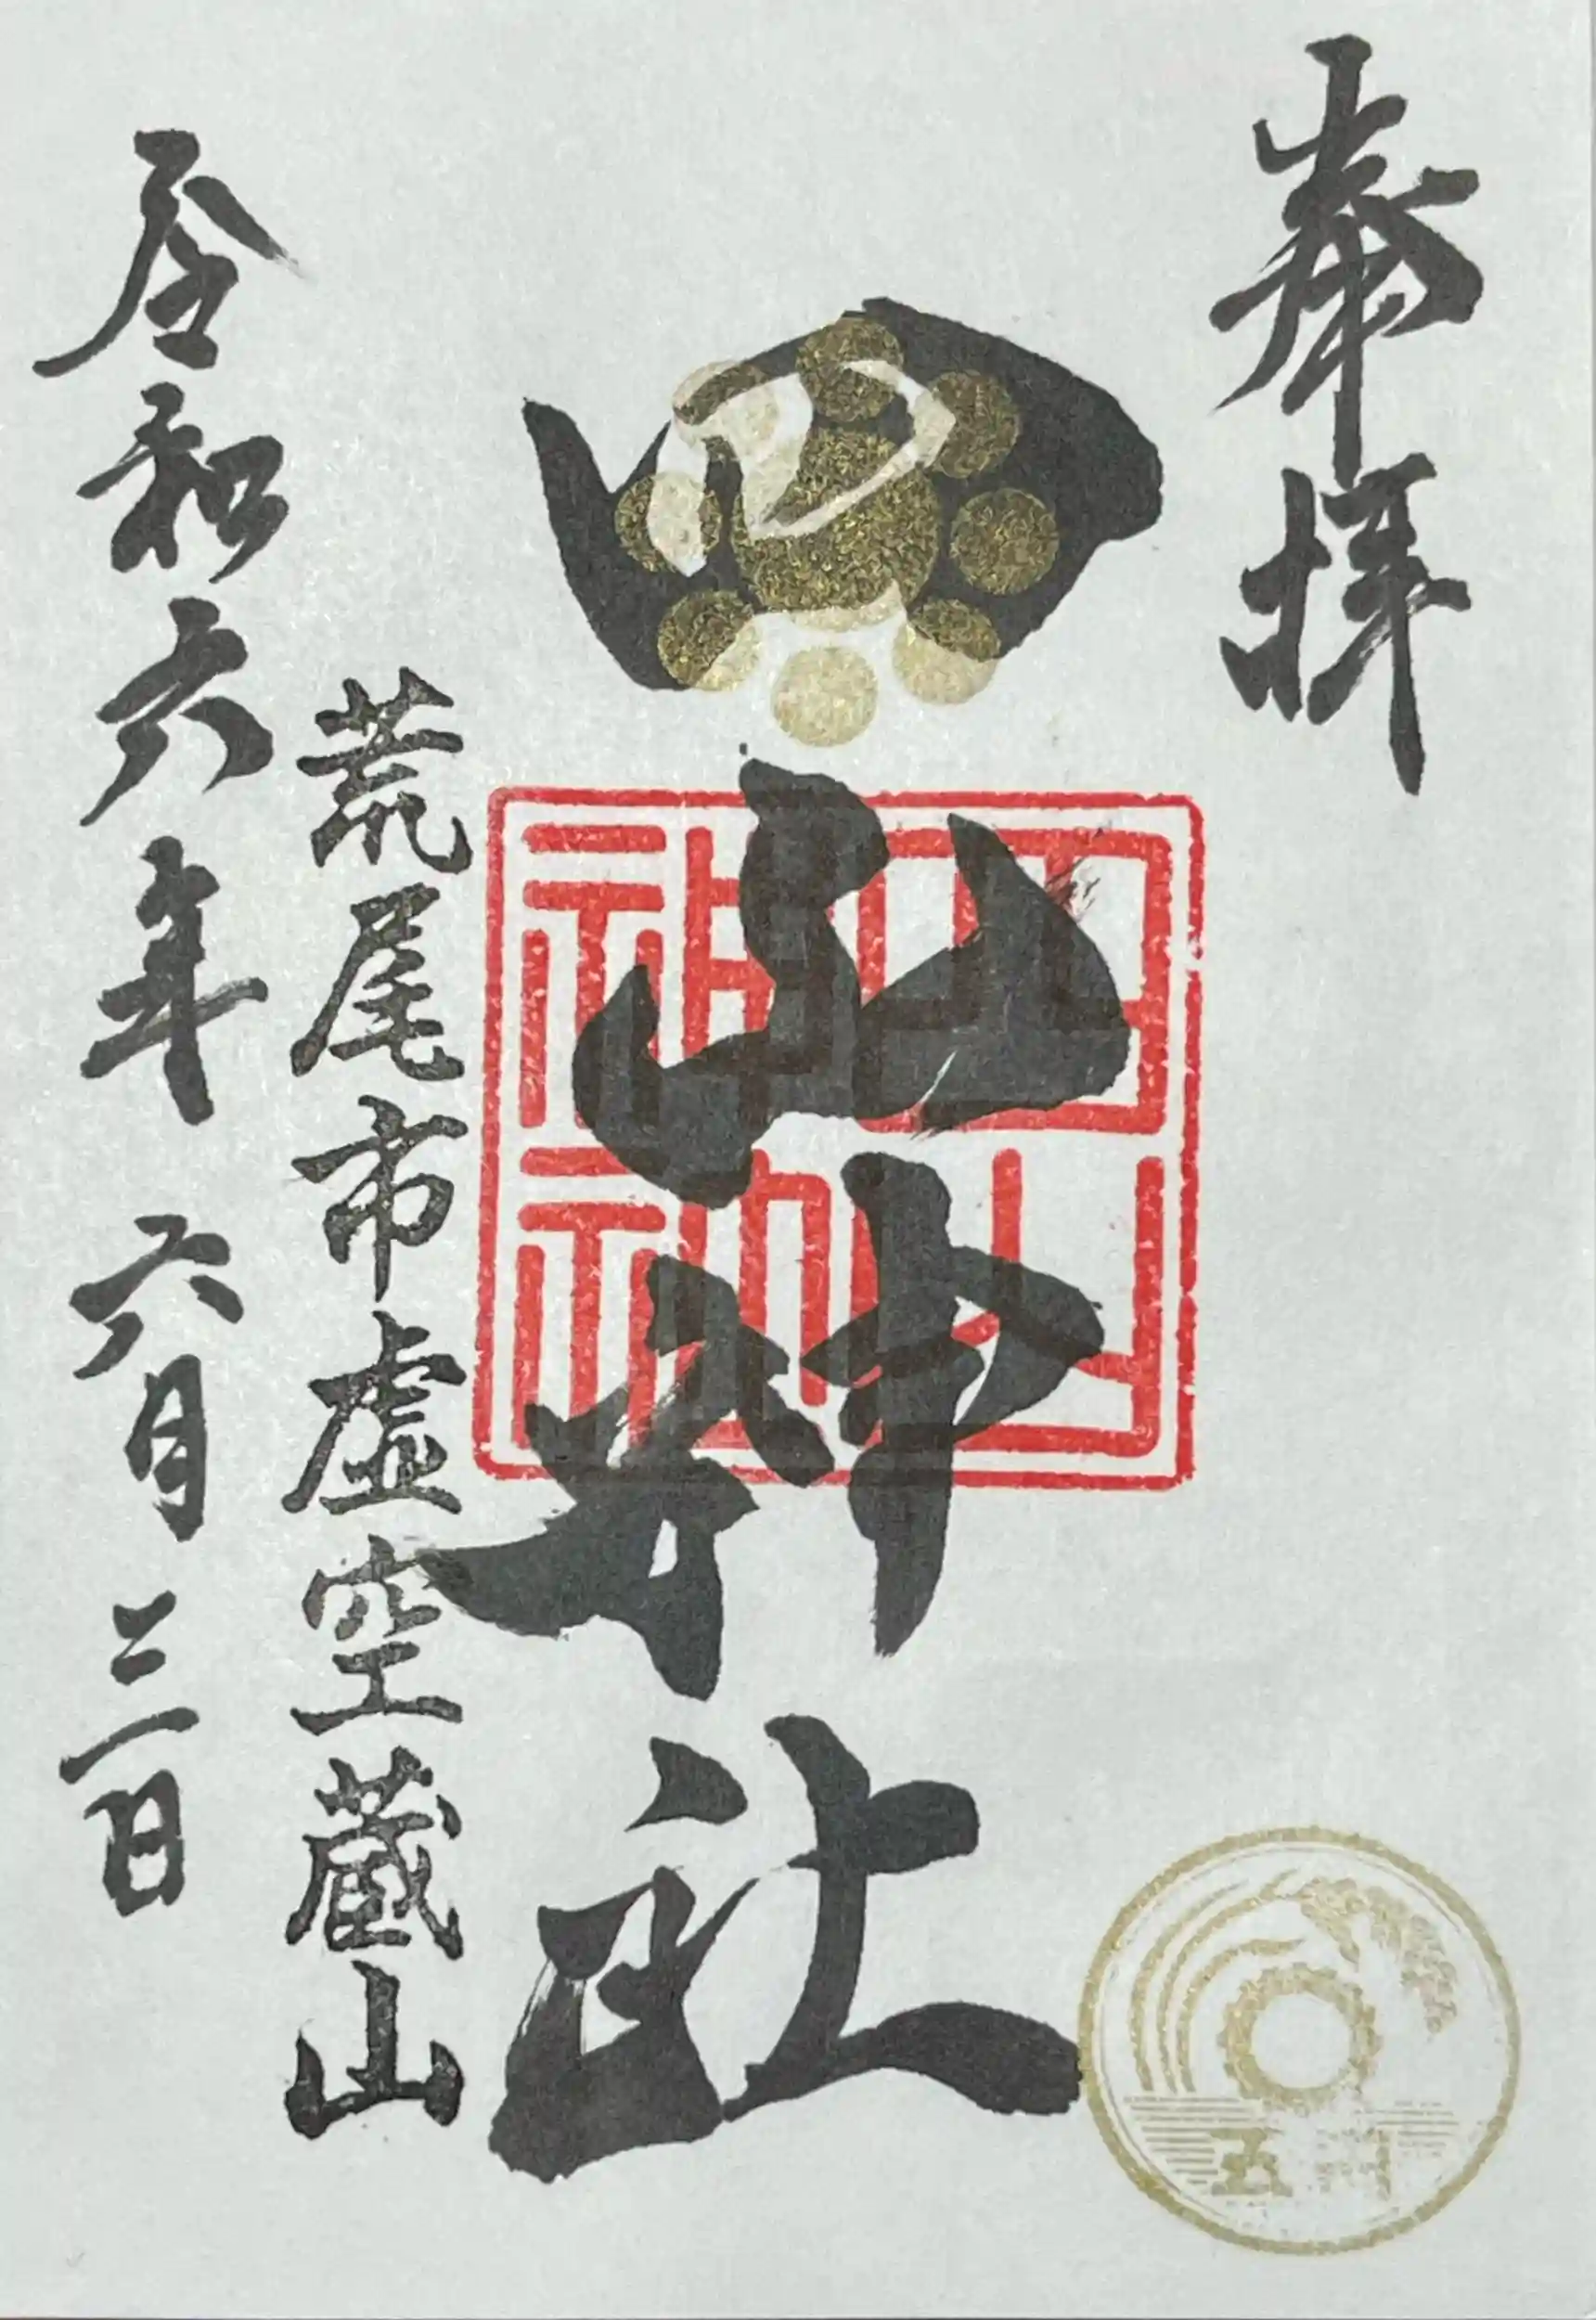 奉拝
四山神社
四山
神社
荒尾市虚空蔵山
令和六年 六月三日
五円